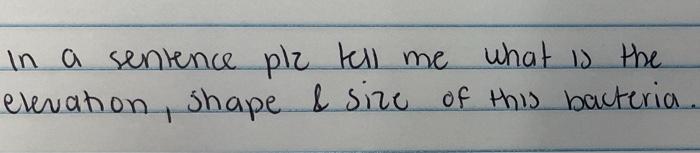 In a sentence plz tell me what is the
elevation, shape & size of this bacteria.